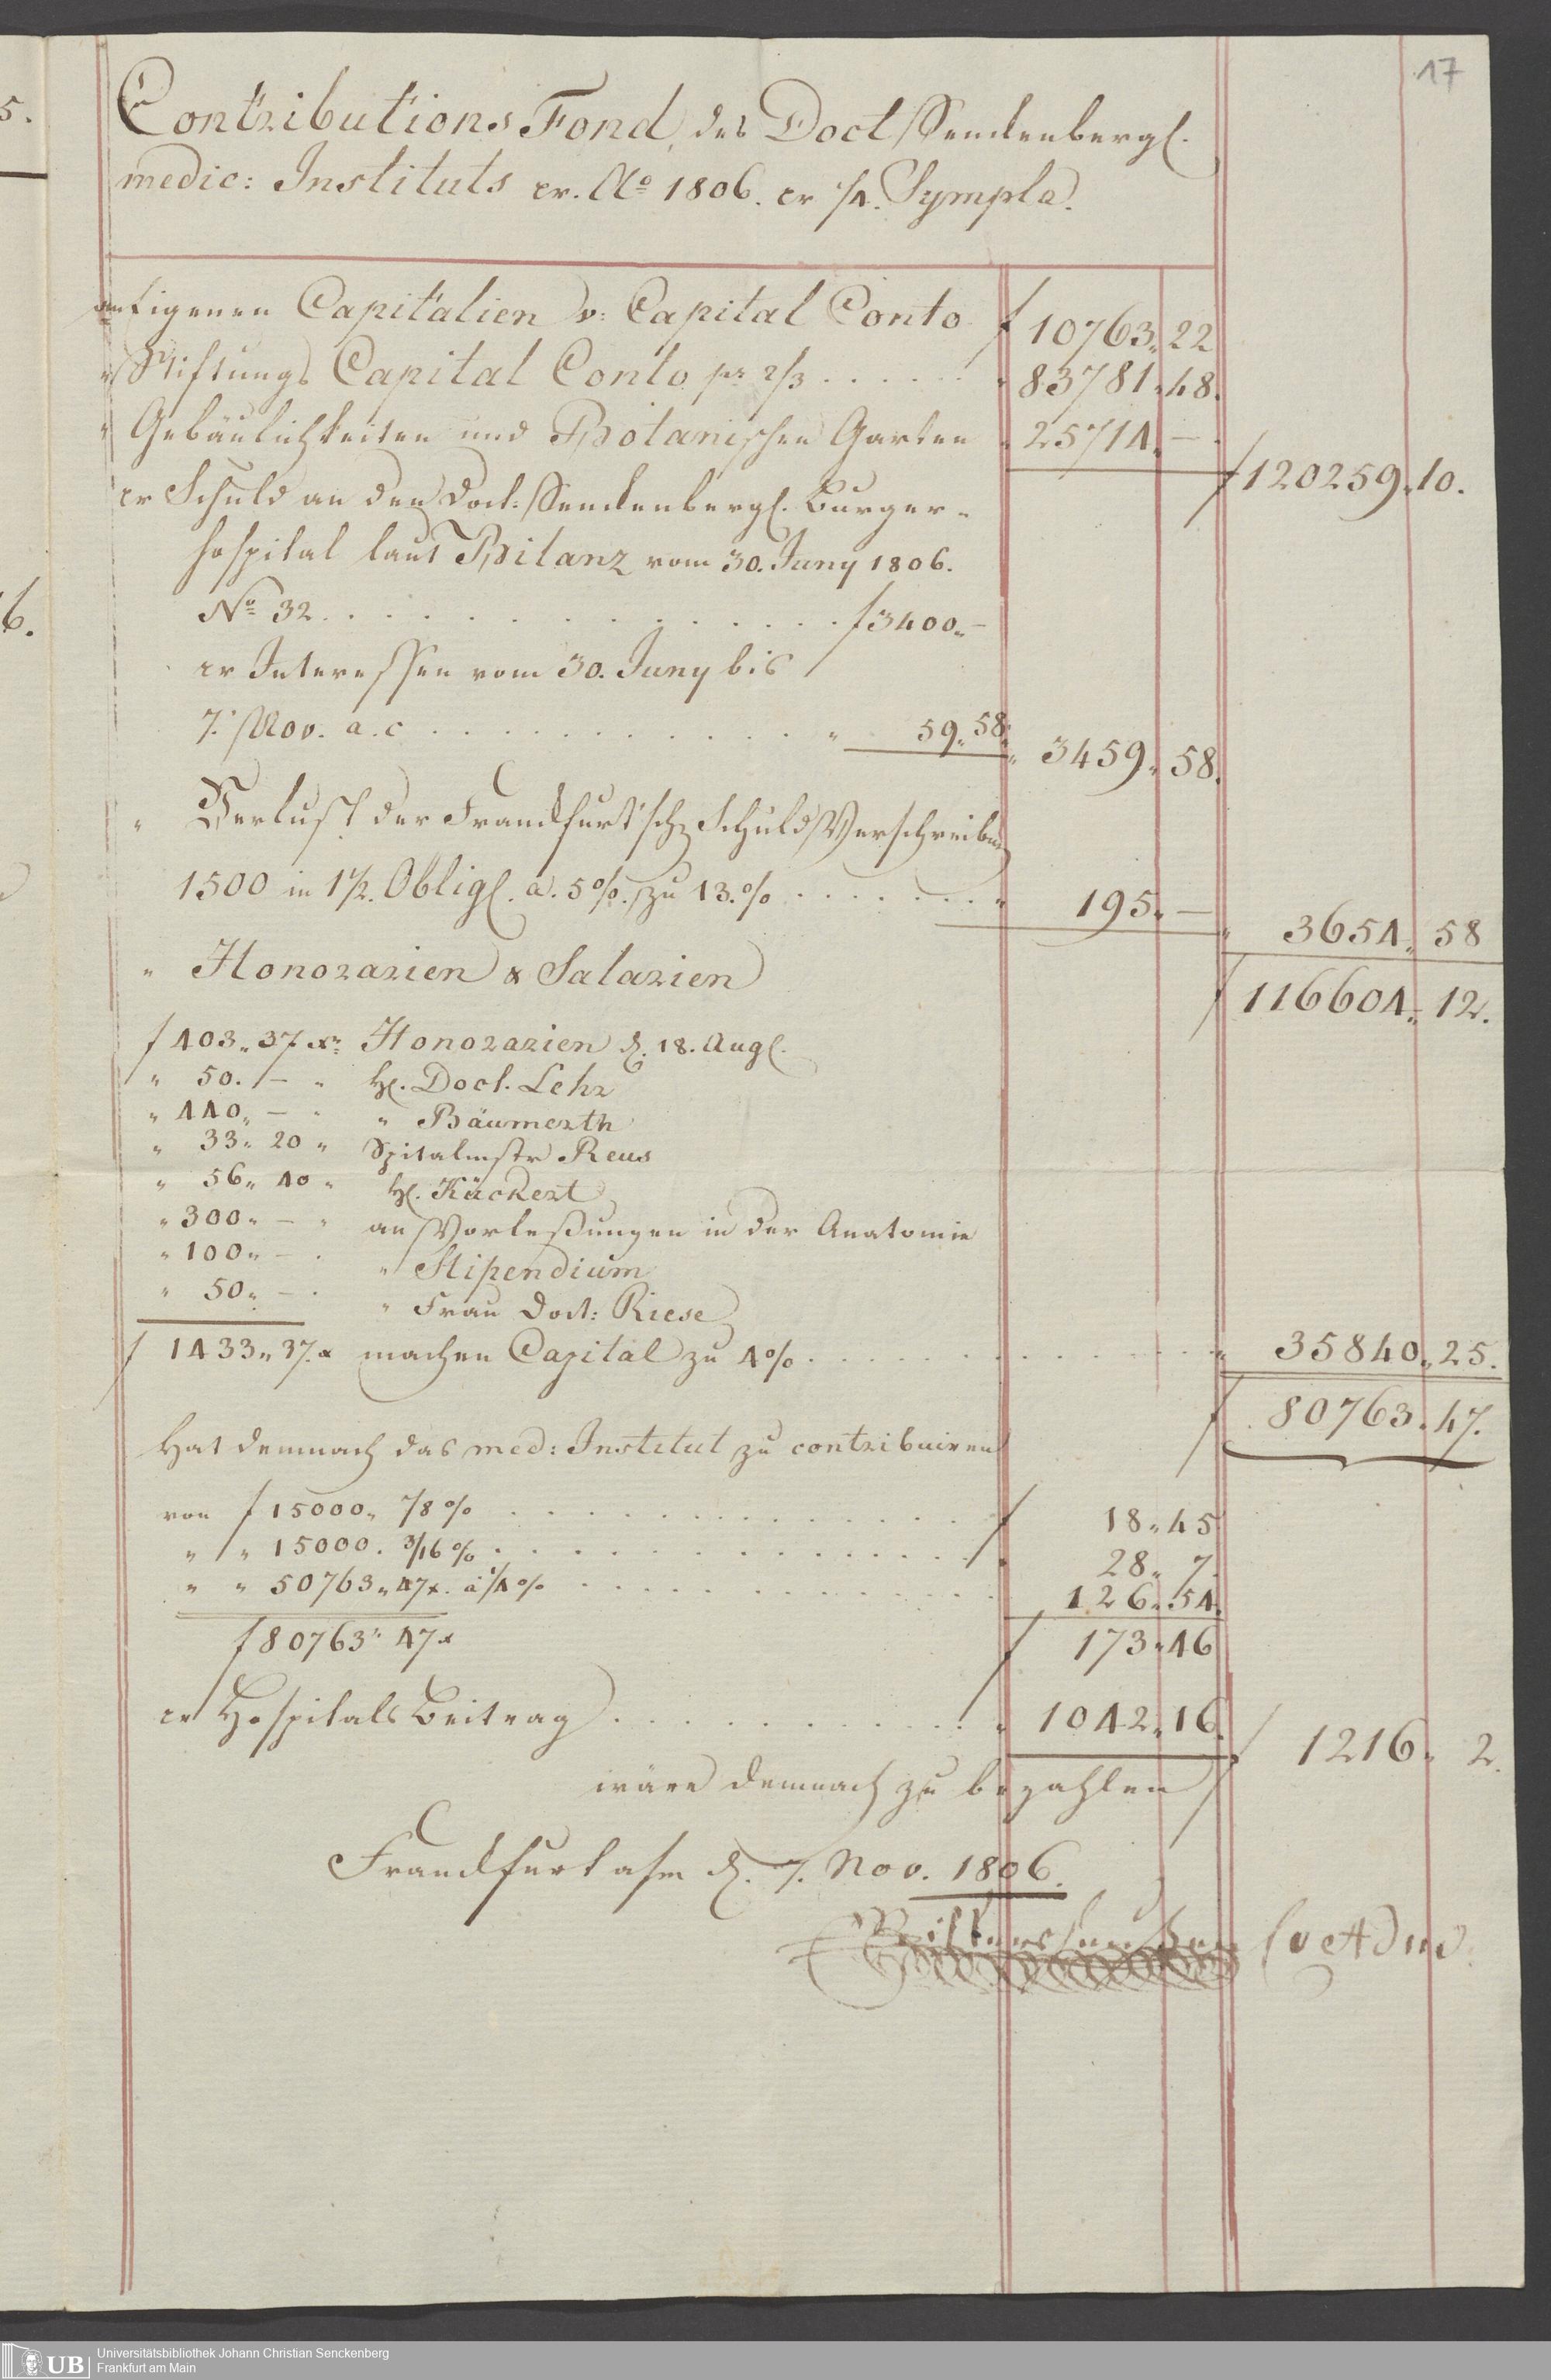 17
5.
6.
Contributions Fond, des Doct Senckenbergl.
medic: Instituts pr. Ao 1806. pr 1/4. Sympla.
an Eigenen Capitalien v: Capital Conto f 10763.. 22
" Stiftungs Capital Conto pr 2/3 . . . . . " 83781.. 48.
" Gebäulichkeiten und Botanischen Garten " 25714.. — f 120259.. 10.
pr Schuld an den Doct: Senckenbergl. Burger-
hospital laut Bilanz vom 30. Juny 1806.
No 32. . . . . . . . . . . f 3400.. —
pr Interessen vom 30. Juny bis
7. Nov. a. c . . . . . . . . . . " 59.. 58. " 3459.. 58.
" Verlust der Franckfurt'sch Schuld Verschreibu
1500 in 1 1/2. Obligl. a. 5 %. zu 13. % . . . . . . " 195.. — " 3654.. 58
" Honorarien & Salarien f 116604.. 12.
f 403.. 37 xr Honorarien d. 18. Augl.
" 50. — " H. Doct. Lehr
" 440.. — " " Bäumerth
" 33.. 20 " Spitalmstr Reus
" 56.. 40 " H. Kückert
" 300.. — " an Vorleßungen in der Anatomie
" 100.. — " " Stipendium
" 50.. — " " Frau Doct: Riese
f 1433.. 37. x machen Capital zu 4 % . . . . . . . . . . " 35840.. 25.
f 80763.. 47.
Hat demnach das med: Institut zu contribuiren
von f 15000.. 1/8 % . . . . . . . . . . f 18.. 45
" " 15000. 3/16 % . . . . . . . . . . " 28.. 7.
" " 50763.. 47 x. à 1/4 % . . . . . . . . 126.. 54.
f 80763.. 47 x f 173.. 46
pr Hospitals Beitrag . . . . . . . . . " 1042.. 16. f 1216.. 2.
wäre demnach zu bezahlen
Franckfurt a/m d. 7. Nov. 1806.